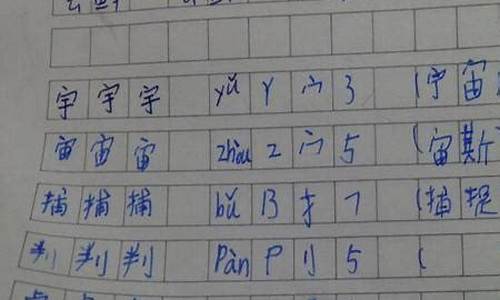 宇 宇 宇 yǔ Y 宀 3 (宇宙
宙 宙 宙 zhòu Z 宀 5 (宙斯
捕 捕 捕 bǔ B 扌 7 (捕捉
判 判 判 Pàn P 刂 5 (